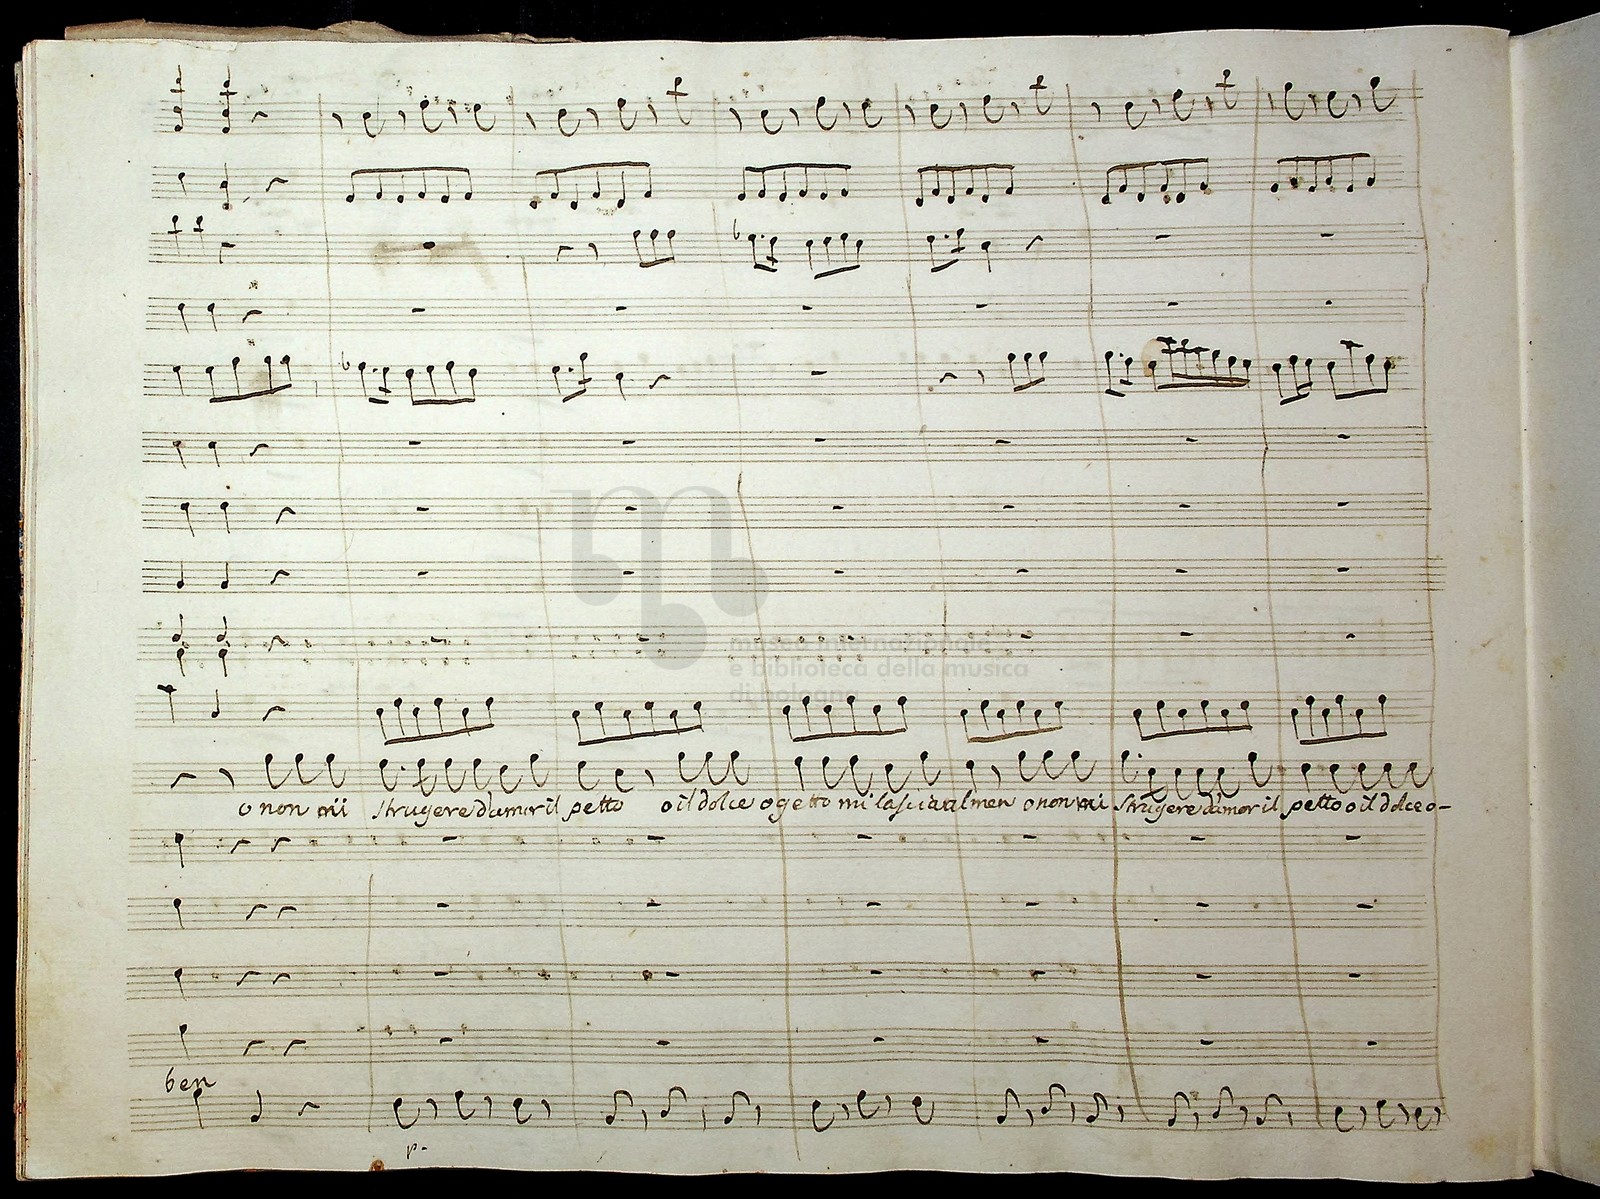 museo internazionale
e biblioteca della musica
di bologna
o non mi struggere d'amor il petto o il dolce ogetto mi lascia almen o non mi struggere d'amor il petto o il dolce o-
ben
p.